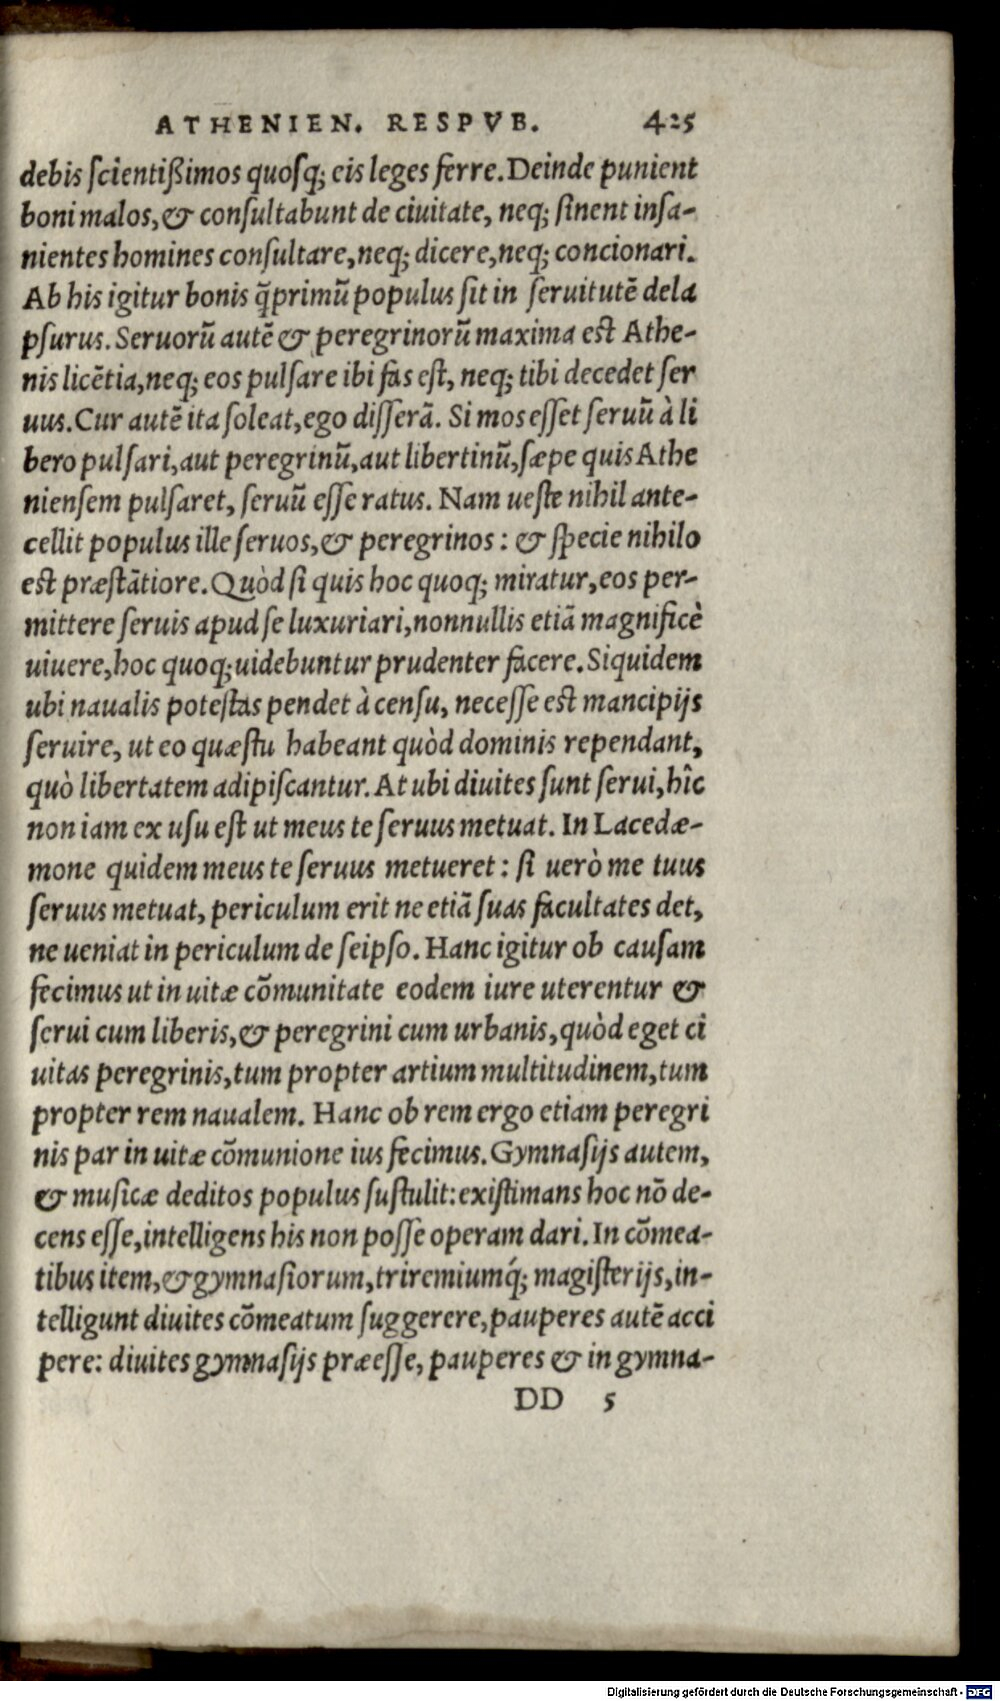 ATHENIEN. RESPVB. 425
debis scientißimos quosq; eis leges ferre. Deinde punient
boni malos, & consultabunt de ciuitate, neq; sinent insa-
nientes homines consultare, neq; dicere, neq; concionari.
Ab his igitur bonis q̃primũ populus sit in seruitutẽ dela
psurus. Seruorũ autẽ & peregrinorũ maxima est Athe-
nis licẽtia, neq; eos pulsare ibi fas est, neq; tibi decedet ser
uus. Cur autẽ ita soleat, ego disserã. Si mos esset seruũ à li
bero pulsari, aut peregrinũ, aut libertinũ, sæpe quis Athe
niensem pulsaret, seruũ esse ratus. Nam ueste nihil ante-
cellit populus ille seruos, & peregrinos: & specie nihilo
est præstãtiore. Quòd si quis hoc quoq; miratur, eos per-
mittere seruis apud se luxuriari, nonnullis etiã magnificè
uiuere, hoc quoq; uidebuntur prudenter facere. Siquidem
ubi naualis potestas pendet à censu, necesse est mancipijs
seruire, ut eo quæstu habeant quòd dominis rependant,
quò libertatem adipiscantur. At ubi diuites sunt serui, hîc
non iam ex usu est ut meus te seruus metuat. In Lacedæ-
mone quidem meus te seruus metueret: si uerò me tuus
seruus metuat, periculum erit ne etiã suas facultates det,
ne ueniat in periculum de seipso. Hanc igitur ob causam
fecimus ut in uitæ cõmunitate eodem iure uterentur &
serui cum liberis, & peregrini cum urbanis, quòd eget ci
uitas peregrinis, tum propter artium multitudinem, tum
propter rem naualem. Hanc ob rem ergo etiam peregri
nis par in uitæ cõmunione ius fecimus. Gymnasijs autem,
& musicæ deditos populus sustulit: existimans hoc nõ de-
cens esse, intelligens his non posse operam dari. In cõmea-
tibus item, & gymnasiorum, triremiumq́; magisterijs, in-
telligunt diuites cõmeatum suggerere, pauperes autẽ acci
pere: diuites gymnasijs præesse, pauperes & in gymna-
DD 5
Digitalisierung gefördert durch die Deutsche Forschungsgemeinschaft - DFG